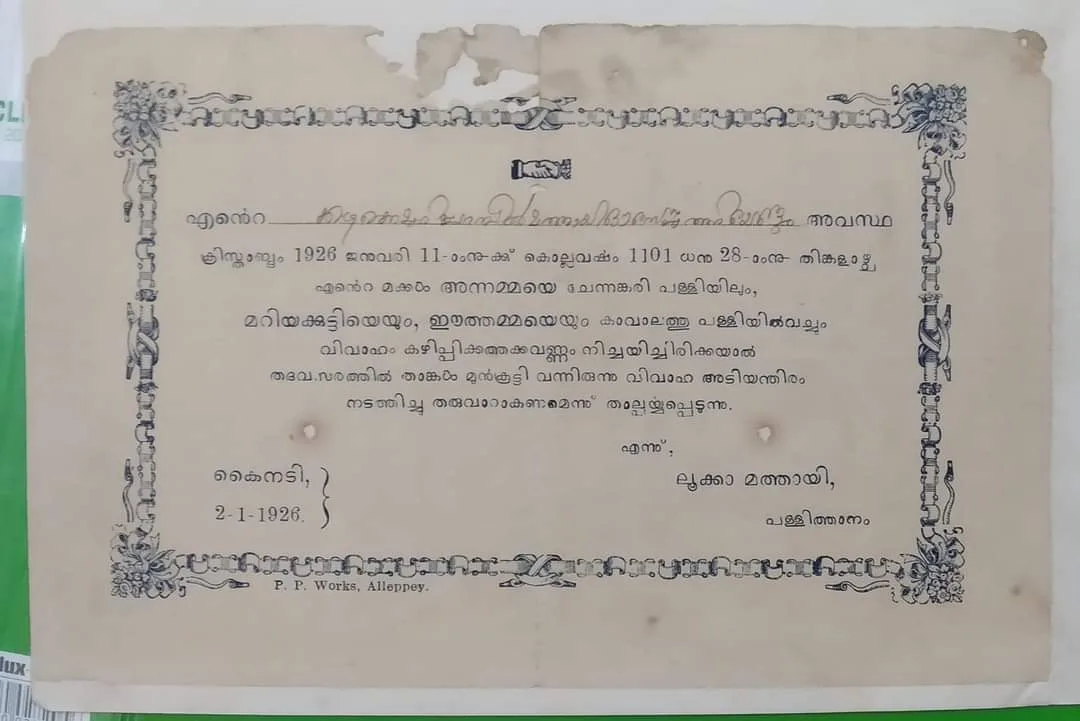 എൻെറ അവസ്ഥ
ക്രിസ്താബ്ദം 1926 ജനുവരി 11-ാംനു-ക്കു് കൊല്ലവർഷം 1101 ധനു 28-ാംനു- തിങ്കളാഴ്ച
എൻെറ മക്കൾ അന്നമ്മയെ ചേന്നങ്കരി പള്ളിയിലും,
മറിയക്കുട്ടിയെയും, ഈത്തമ്മയെയും കാവാലത്തു പള്ളിയിൽവച്ചും
വിവാഹം കഴിപ്പിക്കത്തക്കവണ്ണം നിശ്ചയിച്ചിരിക്കയാൽ
തദവസരത്തിൽ താങ്കൾ മുൻകൂട്ടി വന്നിരുന്നു വിവാഹ അടിയന്തിരം
നടത്തിച്ചു തരുവാറാകണമെന്നു് താല്പര്യപ്പെടുന്നു.
എന്നു്,
കൈനടി,
2-1-1926.
ലൂക്കാ മത്തായി,
പള്ളിത്താനം
P. P. Works, Alleppey.
lux